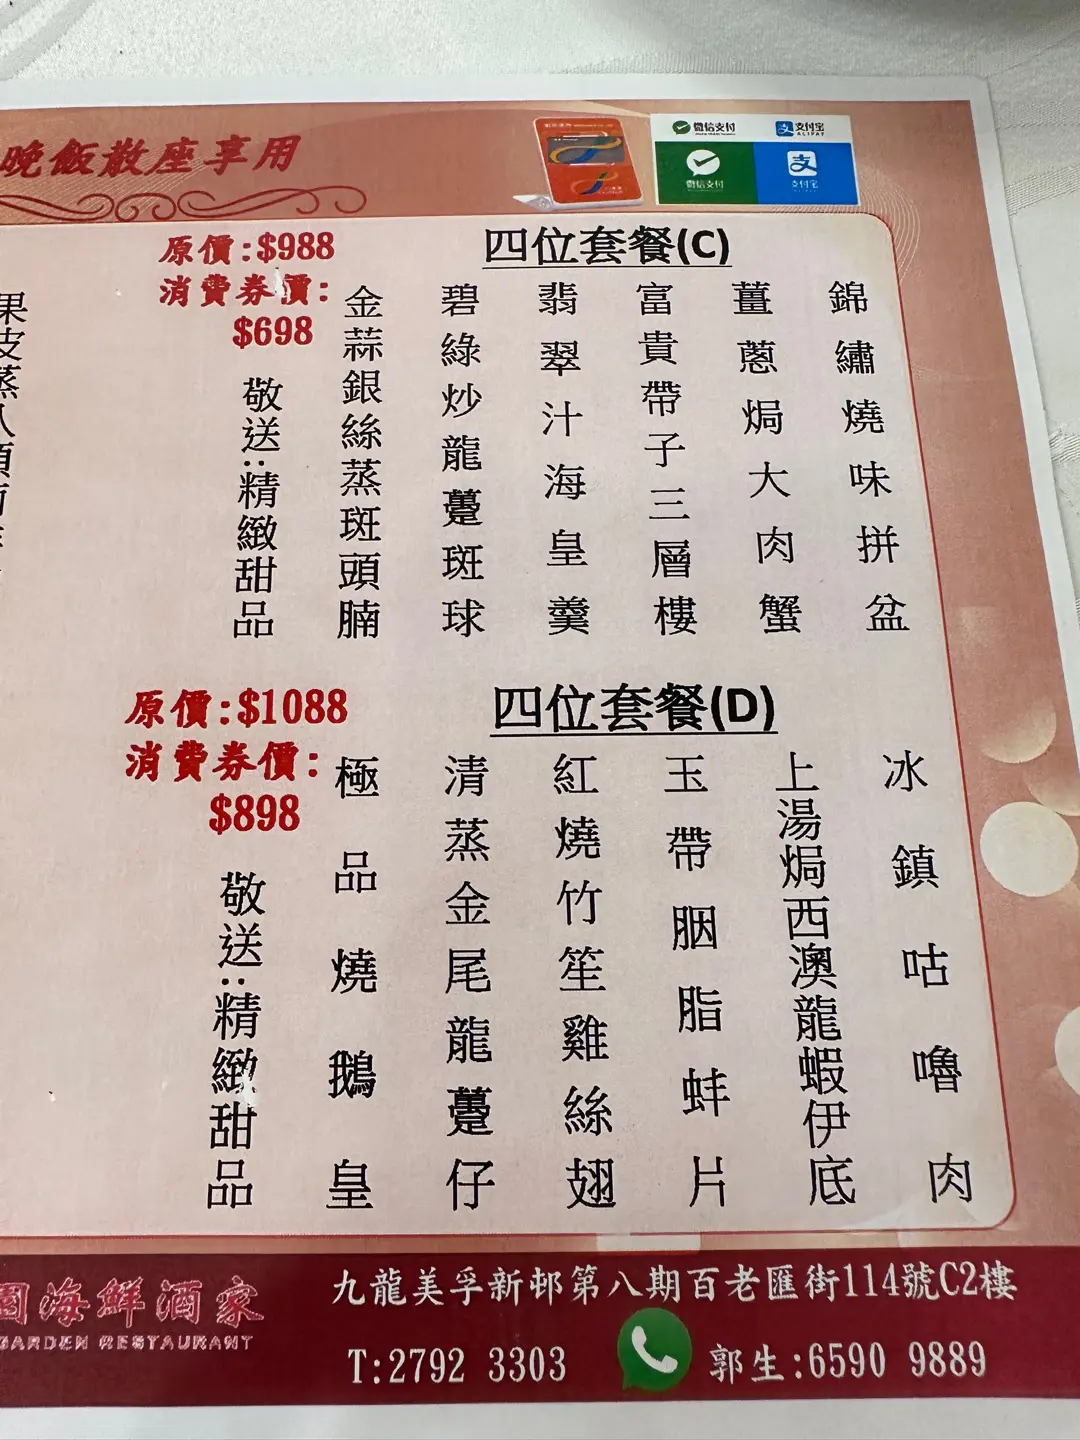 晚飯散座享用
微信支付
支付宝
ALIPAY
微信支付
支付宝
四位套餐(C)
原價:$988
消費券價:
$698
錦繡燒味拼盆
薑蔥焗大肉蟹
富貴帶子三層樓
翡翠汁海皇羹
碧綠炒龍躉斑球
金蒜銀絲蒸斑頭腩
敬送:精緻甜品
四位套餐(D)
原價:$1088
消費券價:
$898
冰鎮咕嚕肉
上湯焗西澳龍蝦伊底
玉帶胭脂蚌片
紅燒竹笙雞絲翅
清蒸金尾龍躉仔
極品燒鵝皇
敬送:精緻甜品
園海鮮酒家
GARDEN RESTAURANT
九龍美孚新邨第八期百老匯街114號C2樓
T:2792 3303
郭生:6590 9889